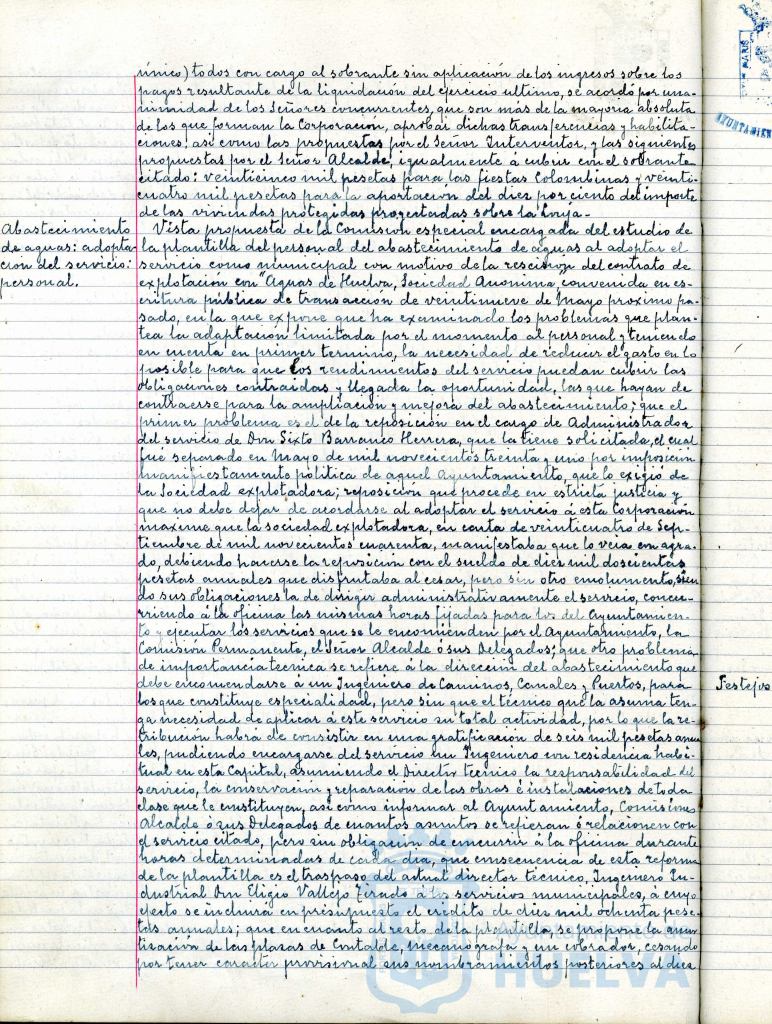 único) todos con cargo al sobrante sin aplicación de los ingresos sobre los
pagos resultante de la liquidación del ejercicio ultimo, se acordó por una-
nimidad de los Señores concurrentes, que son más de la mayoria absoluta
de los que forman la Corporación, aprobar dichas transferencias y habilita-
ciones; asi como las propuestas por el Señor Interventor, y las siguientes
propuestas por el Señor Alcalde, igualmente á cubrir con el sobrante
citado: veinticinco mil pesetas para las fiestas Colombinas y veinti-
cuatro mil pesetas para la aportación del diez por ciento del importe
de las viviendas protegidas proyectadas sobre la
Abastecimiento
de aguas: adopta-
ción del servicio:
personal.
Vista propuesta de la Comisión especial encargada del estudio de
la plantilla del personal del abastecimiento de aguas al adoptar el
servicio como municipal con motivo de la rescisión del contrato de
explotación con "Aguas de Huelva, Sociedad Anonima, convenida en es-
critura pública de transacción de veintinueve de Mayo proximo pa-
sado, en la que expone que ha examinado los problemas que plan-
tea la adaptación limitada por el momento al personal y teniendo
en cuenta en primer termino, la necesidad de reducir el gasto en lo
posible para que los rendimientos del servicio puedan cubrir las
obligaciones contraidas y llegada la oportunidad, las que hayan de
contraerse para la ampliación y mejora del abastecimiento; que el
primer problema es el de la reposición en el cargo de Administrador
del servicio de Don Sixto Barranco Herrera, que la tiene solicitada, el cual
fué separado en Mayo de mil novecientos treinta y uno por imposición
manifiestamente politica de aquel Ayuntamiento, que lo exigió de
la Sociedad explotadora; reposición que procede en estricta justicia y
que no debe dejar de acordarse al adoptar el servicio á esta Corporación
maxime que la sociedad explotadora, en carta de veinticuatro de Sep-
tiembre de mil novecientos cuarenta, manifestaba que lo veia con agra-
do, debiendo hacerse la reposición con el sueldo de diez mil doscientas
pesetas anuales que disfrutaba al cesar, pero sin otro emolumento, sien
do sus obligaciones la de dirigir administrativamente el servicio, concu-
rriendo á la oficina las mismas horas fijadas para los del Ayuntamien-
to y ejecutar los servicios que se le encomienden por el Ayuntamiento, la
Comisión Permanente, el Señor Alcalde ó sus Delegados; que otro problema
de importancia tecnica se refiere á la dirección del abastecimiento que
debe encomendarse á un Ingeniero de Caminos, Canales y Puertos, para
los que constituye especialidad, pero sin que el técnico que la asuma ten-
ga necesidad de aplicar á este servicio su total actividad, por lo que la re-
tribución habrá de consistir en una gratificación de seis mil pesetas anua
les, pudiendo encargarse del servicio un Ingeniero con residencia habi-
tual en esta Capital, asumiendo el Director Tecnico la responsabilidad del
servicio, la conservación y reparación de las obras é instalaciones de toda
clase que le constituyen, asi como informar al Ayuntamiento, Comisiones
Alcalde ó sus Delegados de cuantos asuntos se refieran ó relacionen con
el servicio citado, pero sin obligación de concurrir á la oficina durante
horas determinadas de cada dia, que consecuencia de esta reforma
de la plantilla es el traspaso del actual director técnico, Ingeniero In-
dustrial Don Eligio Vallejo á los servicios municipales, á cuyo
efecto se incluirá en presupuesto el crédito de diez mil ochenta pese-
tas anuales; que en cuanto al resto de la plantilla, se propone la amor-
tización de las plazas de Contable, mecanografa y un cobrador, cesando
por tener caracter provisional sus nombramientos posteriores al diez
Festejos
AYUNTAMIEN
HUELVA